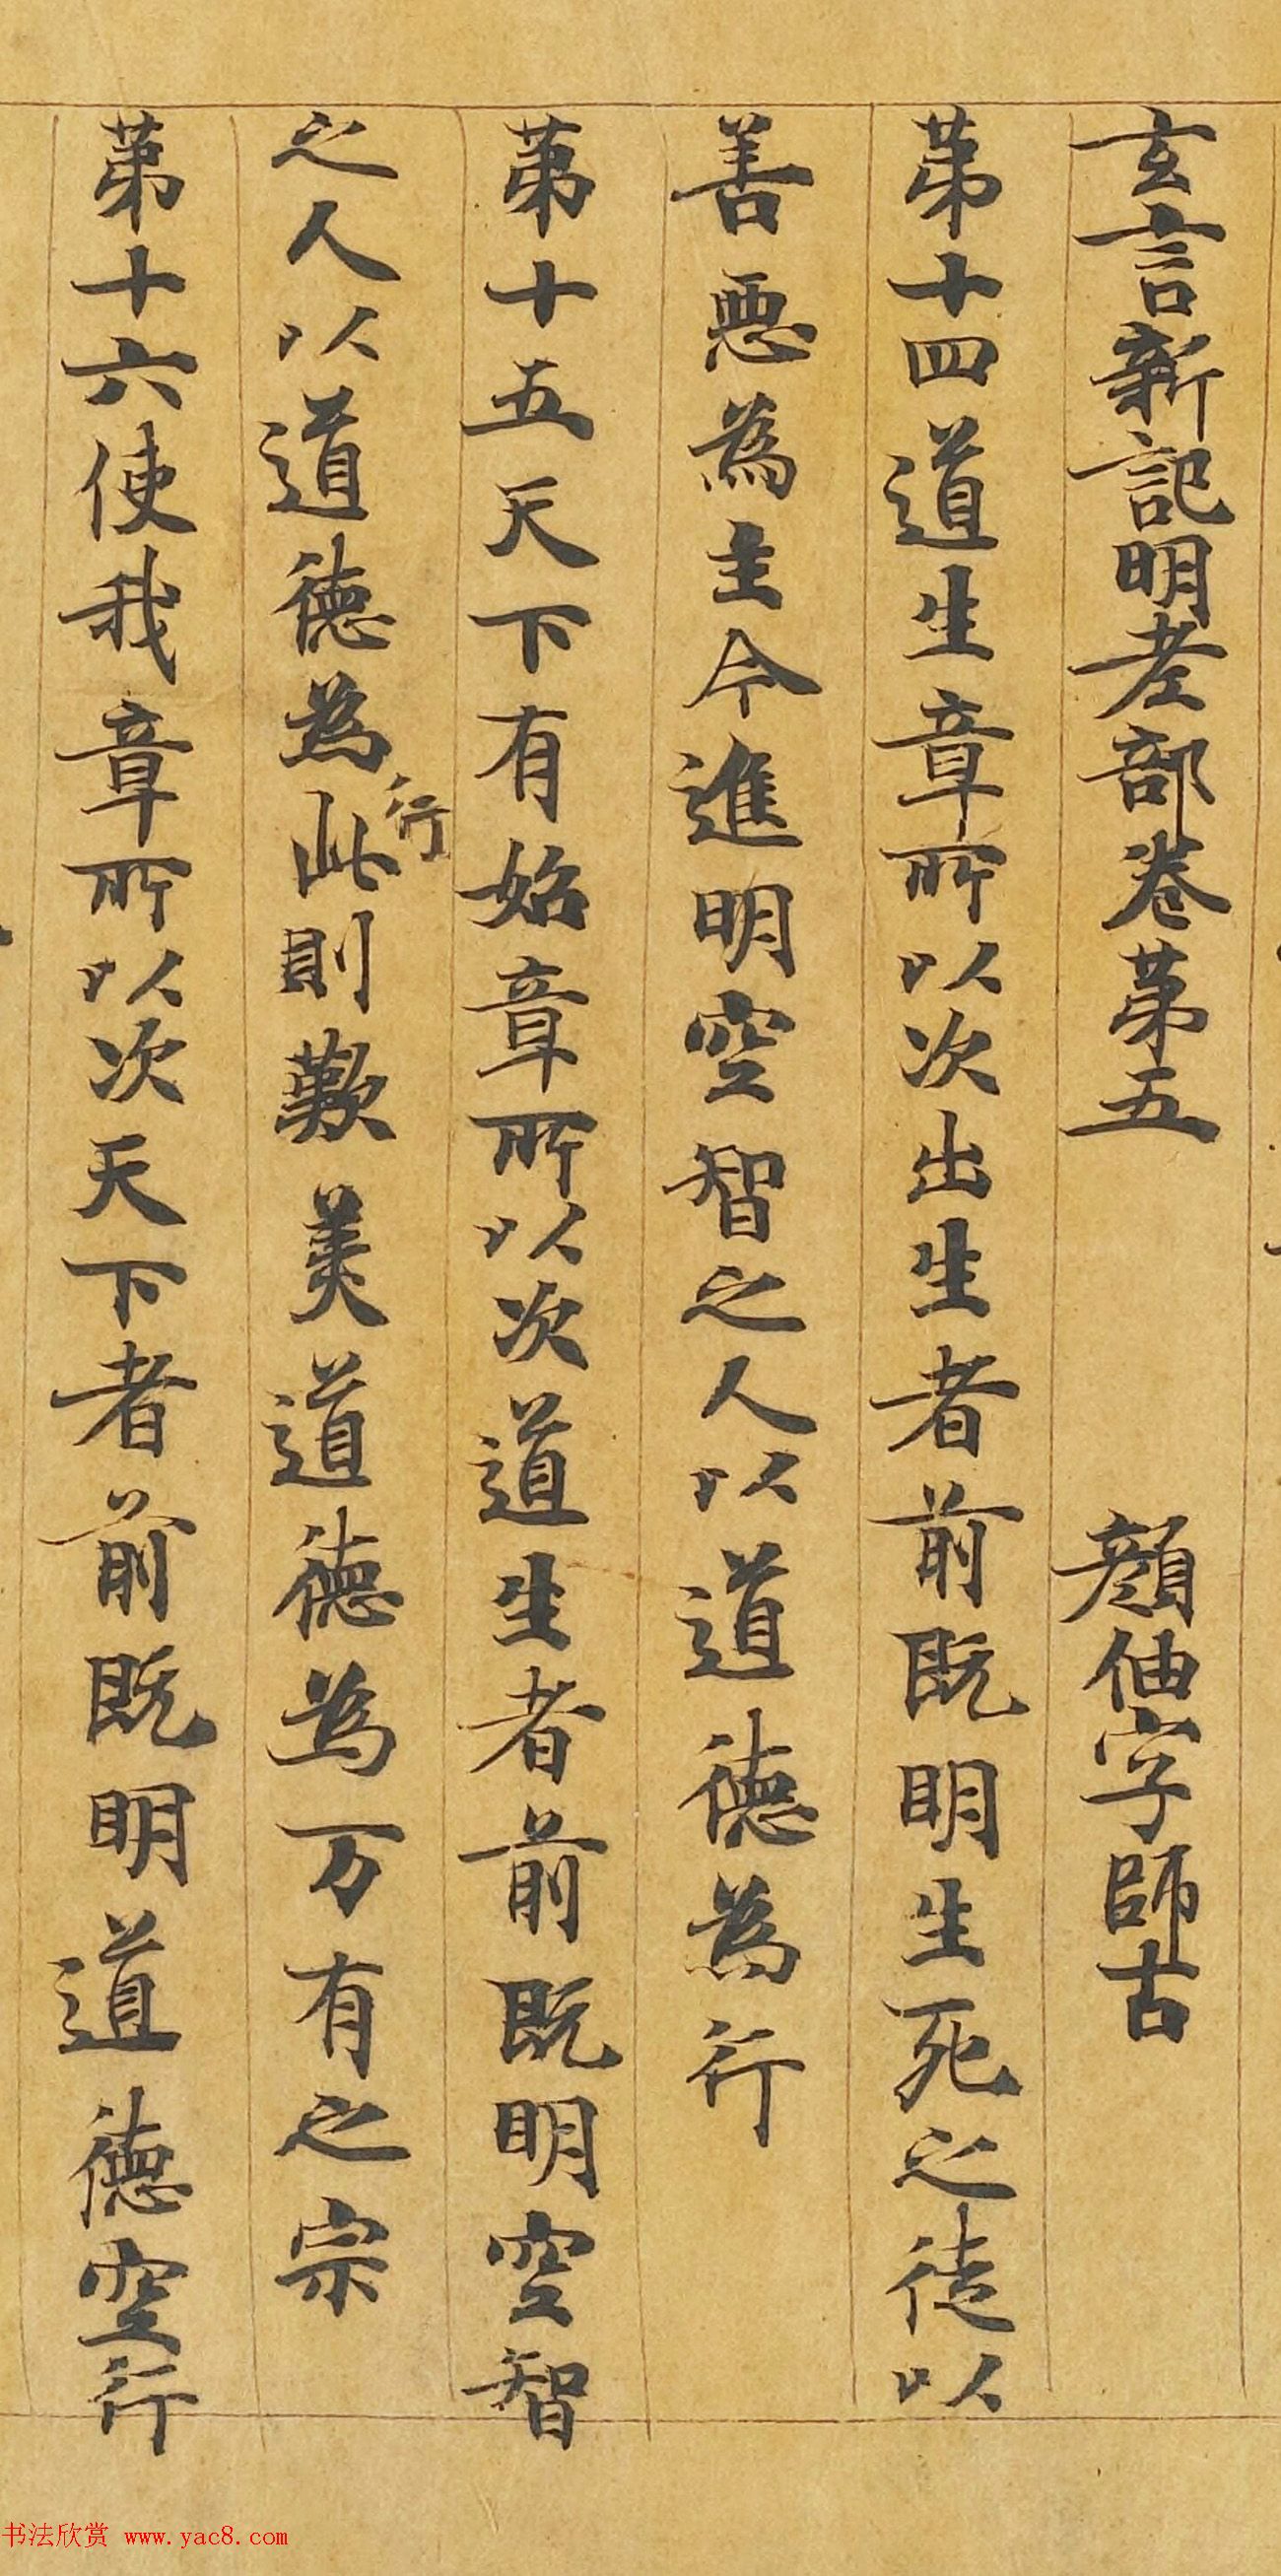 玄言新記明老部卷第五 顏伷字師古
第十四道生章所以次出生者前既明生死之徒以
善惡為主今進明空智之人以道德為行
第十五天下有始章所以次道生者前既明空智
之人以道德為行此則歎美道德為万有之宗
第十六使我章所以次天下者前既明道德空行
书法欣赏 www.yac8.com